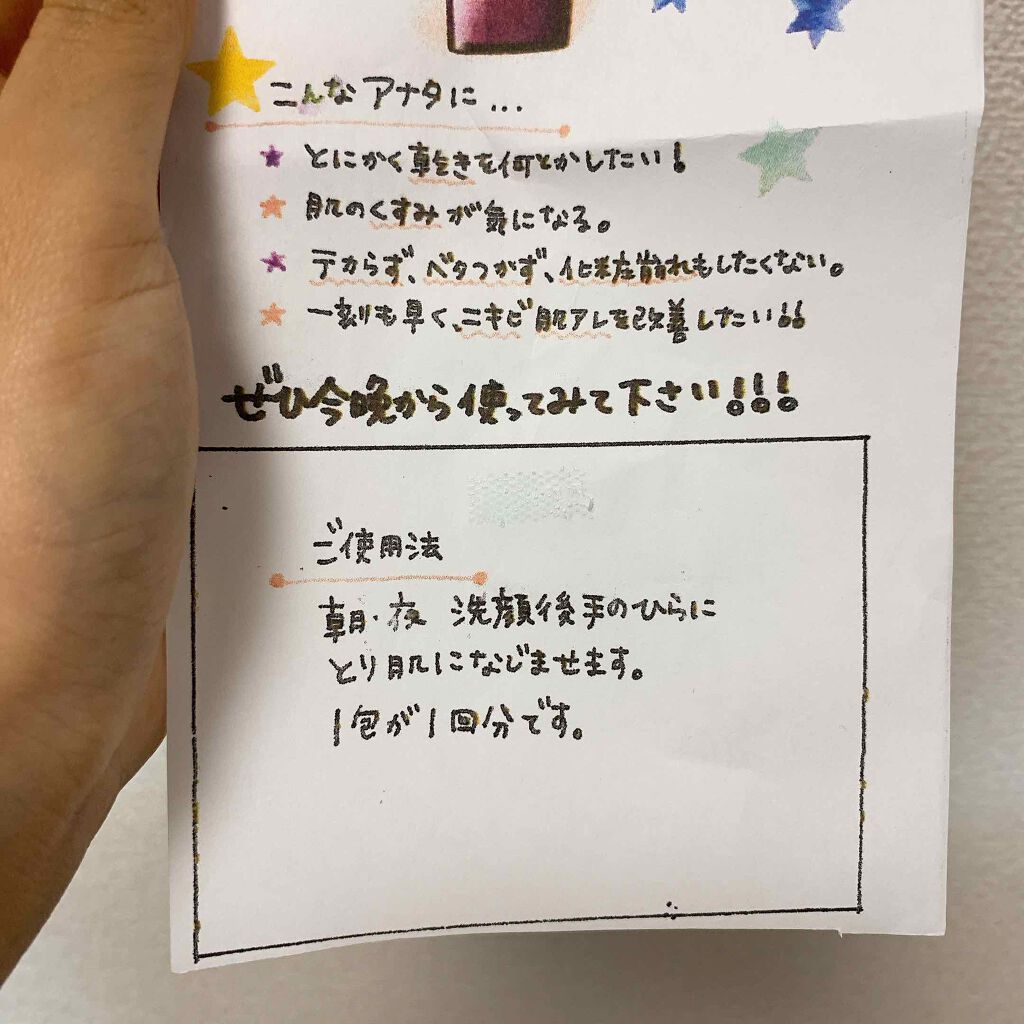 こんなアナタに...
とにかく乾きを何とかしたい!
肌のくすみが気になる。
テカらず、ベタつかず、化粧崩れもしたくない。
一刻も早く、ニキビ肌アレを改善したい!!
ぜひ今晩から使ってみて下さい!!!
ご使用法
朝・夜 洗顔後手のひらに
とり肌になじませます。
1包が1回分です。